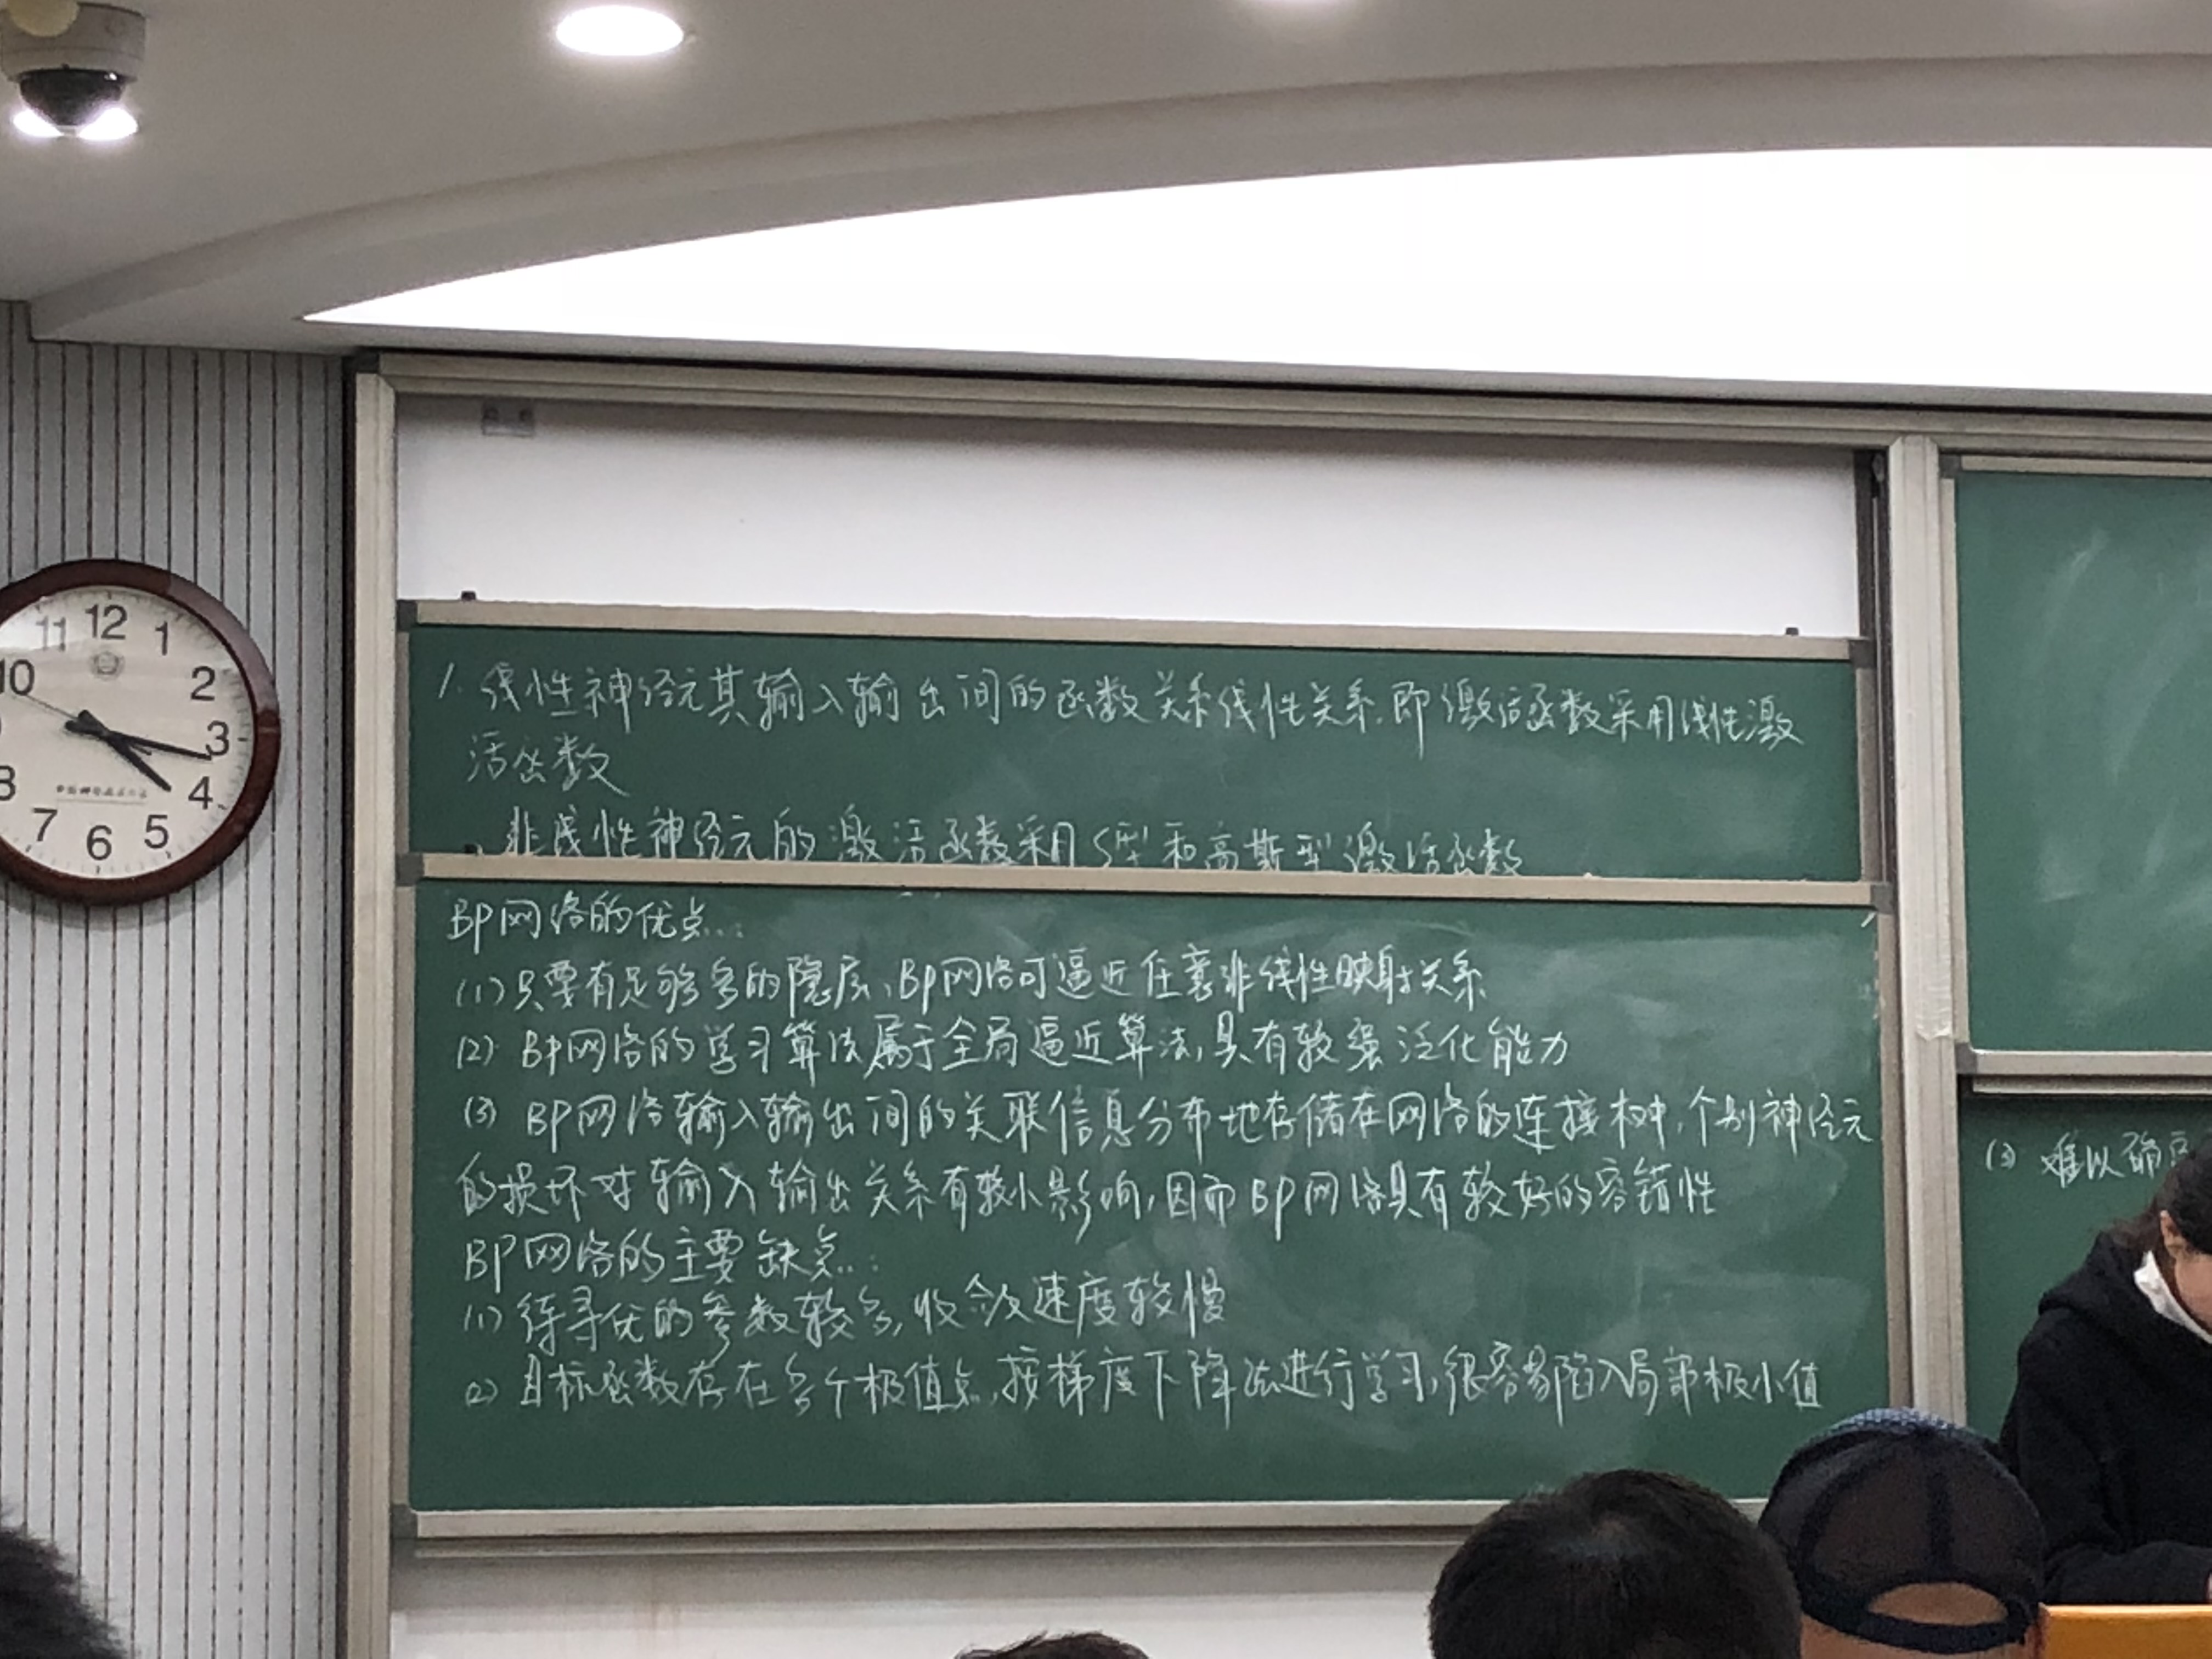 12
11
1
10
2
3
8
4
7
5
6
1. 线性神经元其输入输出间的函数关系线性关系.即激活函数采用线性激
活函数
非线性神经元的激活函数采用S型和高斯型激活函数
BP网络的优点:
(1)只要有足够多的隐层,BP网络可逼近任意非线性映射关系
(2) BP网络的学习算法属于全局逼近算法,具有较强泛化能力
(3) BP网络输入输出间的关联信息分布地存储在网络的连接权中,个别神经元
的损坏对输入输出关系有较小影响,因而BP网络具有较好的容错性
BP网络的主要缺点:
(1) 待寻优的参数较多,收敛速度较慢
(2) 目标函数存在多个极值点,按梯度下降法进行学习,很容易陷入局部极小值
(3) 难以确定